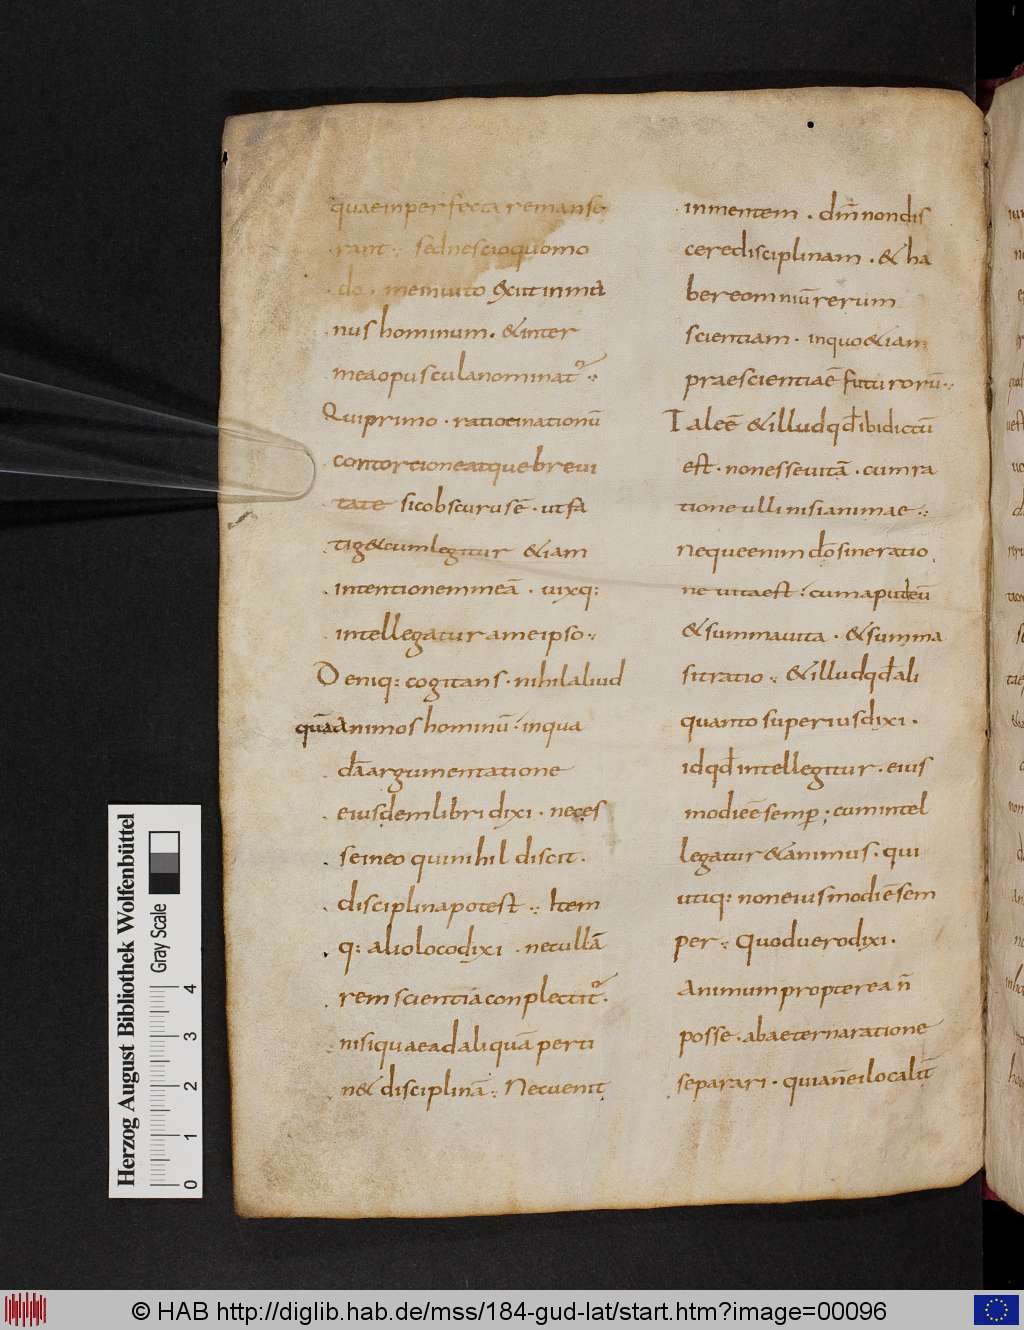 quaeinperfecta remanse
rant ·: sednescioquomo
do · meinuito exiitinma
nushominum · &inter
meaopusculanominat᷑ ·:
Quiprimo · ratiocinationū
contortioneatquebreui
tate sicobscurusē · utfa
tig&cumlegitur &iam
intentionemmeā · uixq:
intellegaturameipso ·:
Deniq: cogitans · nihilaliud
quāanimoshominū · inqua
dāargumentatione
eiusdemlibridixi · neces
seineo quinihil discit ·
disciplinapotest ·: Item
q: alioloco dixi · necullā
rem scientiaconplectit᷑ ·
nisiquaeadaliquāperti
n& disciplinā ·: Necuenit
inmentem · dm̄ nondis
ceredisciplinam · & ha
bereomniūrerum
scientiam · inquo&iam
praescientiaē futurorū ·:
Taleē &illudqd̄ibidictū
est · nonesseuitā · cumra
tioneulli nisianimae ·:
Nequeenim dōsineratio
ne uitaest : cumaputeū
&summauita · &summa
sitratio ·: &illudqd̄ali
quantosuperiusdixi ·
idqd̄intellegitur · eius
modieēsemp̲ ; cumintel
legatur&animus · qui
utiq: noneiusmodiēsem
per ·: Quoduerodixi ·
Animumpropterea n̄
posse · abaeternaratione
separari · quian̄eilocalit̄
Herzog August Bibliothek Wolfenbüttel
Gray Scale
0 1 2 3 4
© HAB http://diglib.hab.de/mss/184-gud-lat/start.htm?image=00096